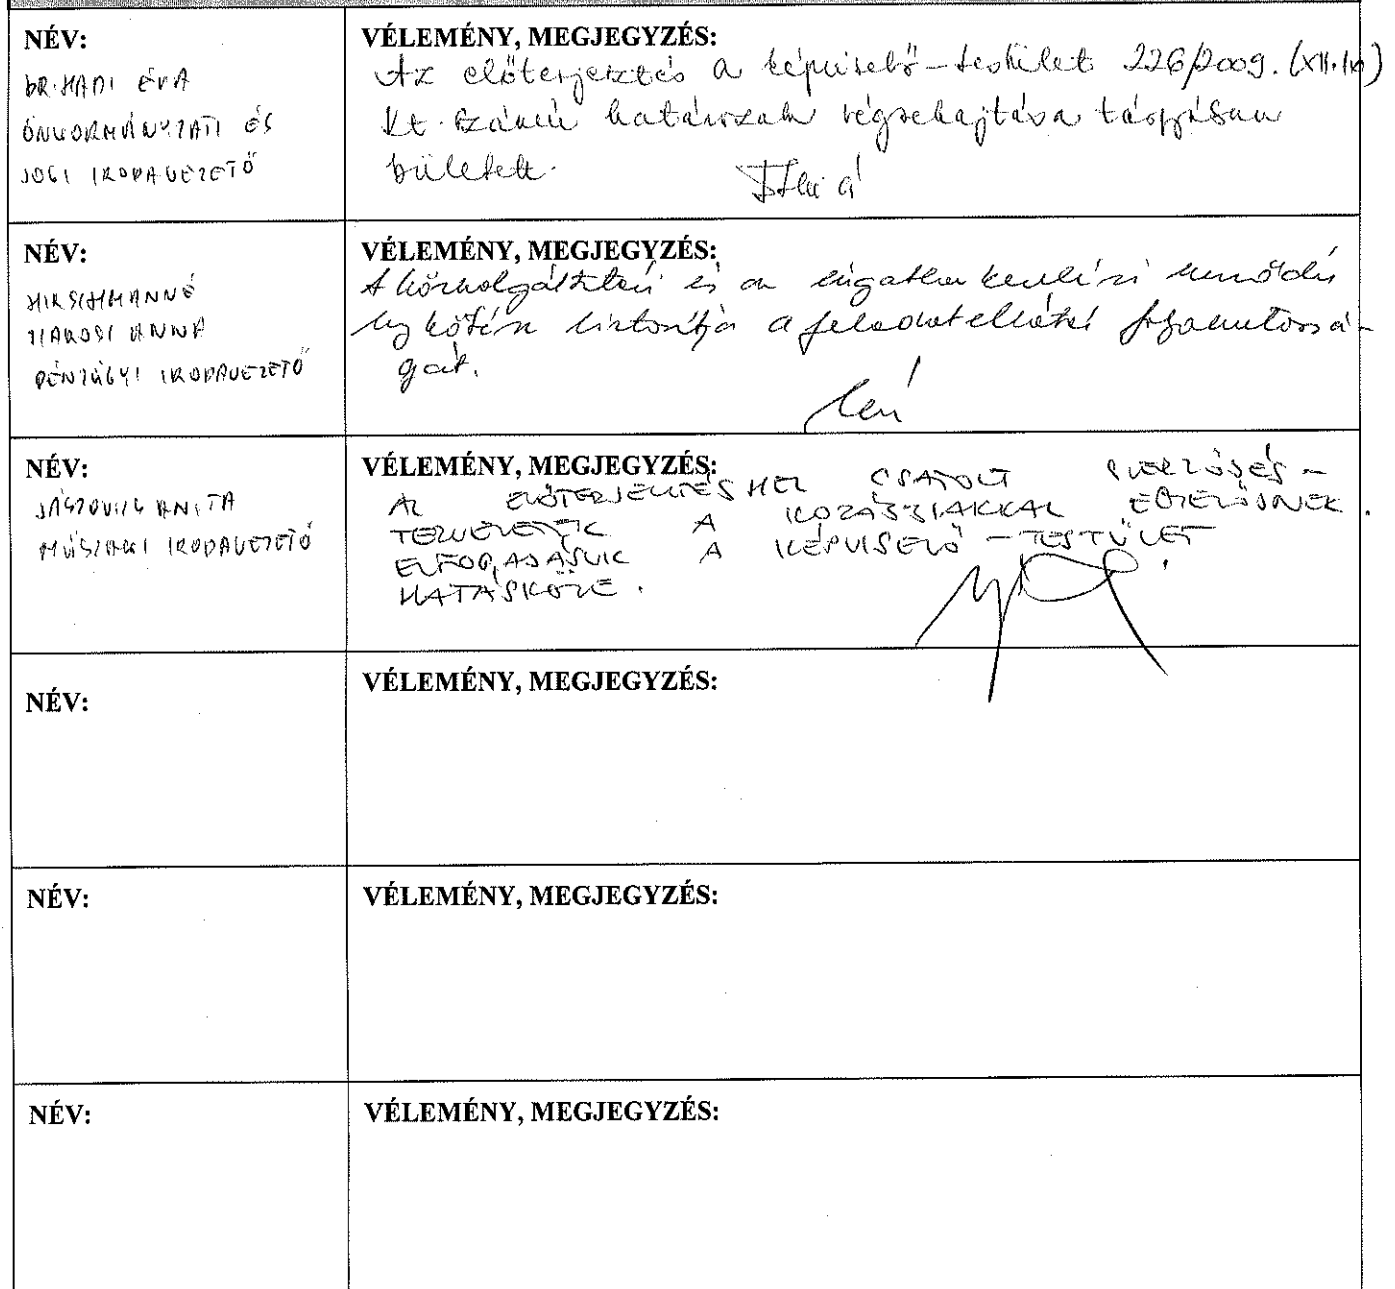 NÉV:
DR. HADI ÉVA
ÖNKORMÁNYZATI ÉS
JOGI IRODAVEZETŐ
VÉLEMÉNY, MEGJEGYZÉS:
Az előterjesztés a képviselő-testület 226/2009. (XII.
Kt. számú határozata végrehajtása tárgyában
született.
NÉV:
HIRSCHMANNÉ
MAROSI ANNA
PÉNZÜGYI IRODAVEZETŐ
VÉLEMÉNY, MEGJEGYZÉS:
A közszolgáltatási és az ingatlankezelési szerződés
biztosítja a feladatellátás folyamatossá-
gát.
NÉV:
JÁSZOVICS ANITA
MŰSZAKI IRODAVEZETŐ
VÉLEMÉNY, MEGJEGYZÉS:
AZ ELŐTERJESZTÉSHEZ CSATOLT SZERZŐDÉS-
TERVEZETEK A
ELFOGADÁSUK A KÉPVISELŐ-TESTÜLET
HATÁSKÖRE.
NÉV:
VÉLEMÉNY, MEGJEGYZÉS:
NÉV:
VÉLEMÉNY, MEGJEGYZÉS:
NÉV:
VÉLEMÉNY, MEGJEGYZÉS: